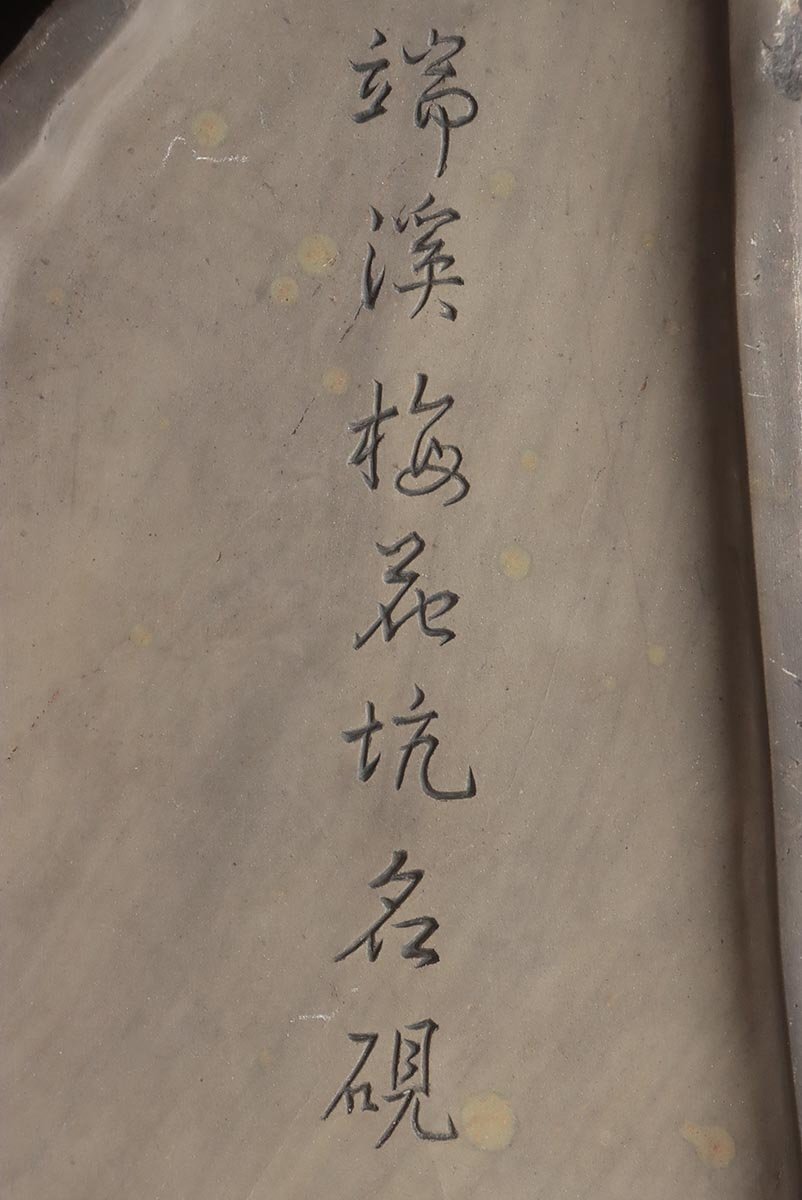 端溪梅花坑名硯